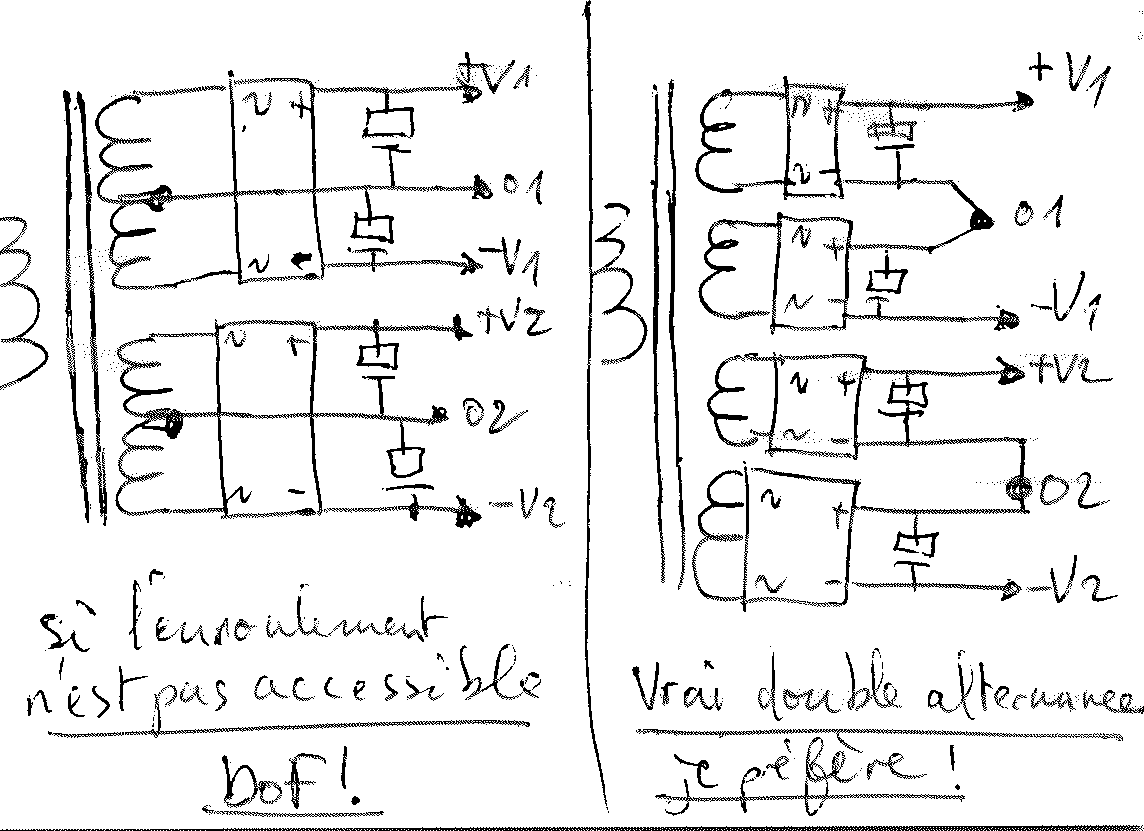 +V1
~ +
01
~ -
-V1
+V2
~ +
02
~ -
-V2
si l'enroulement
n'est pas accessible
bof!
+V1
~ +
~ -
01
~ +
~ -
-V1
+V2
~ +
~ -
02
~ +
~ -
-V2
Vrai double alternance
je préfère !